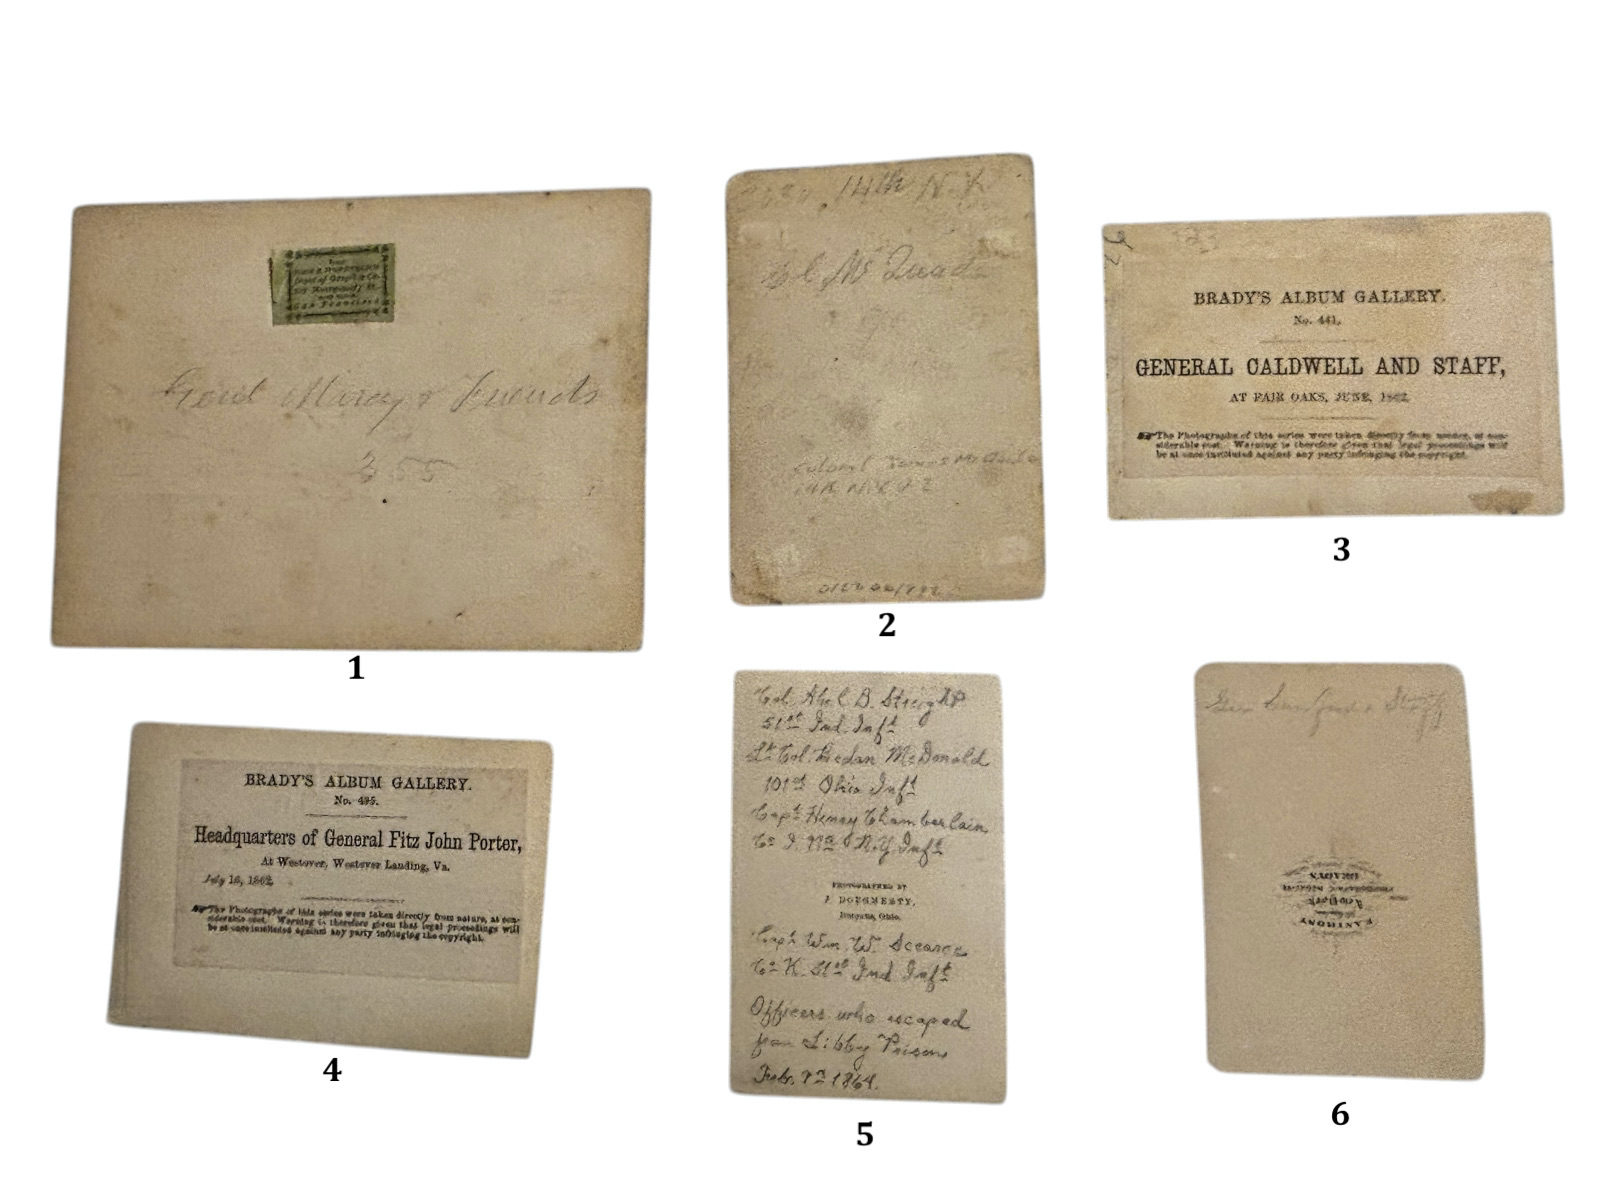 Genl Marcy & Friends
355
1
14th N.Y.
Col McQuade
Colonel James McQuade
14th N.Y.
2
BRADY'S ALBUM GALLERY.
No. 441.
GENERAL CALDWELL AND STAFF,
AT FAIR OAKS, JUNE, 1862.
The Photographs of this series were taken directly from nature, at con-
siderable cost. Warning is therefore given that legal proceedings will
be at once instituted against any party infringing the copyright.
3
BRADY'S ALBUM GALLERY.
No. 495.
Headquarters of General Fitz John Porter,
At Westover, Westover Landing, Va.
July 16, 1862.
The Photographs of this series were taken directly from nature, at con-
siderable cost. Warning is therefore given that legal proceedings will
be at once instituted against any party infringing the copyright.
4
Col. Abel D. Streight
51st Ind. Inft
Lt Col. McDonald
101st Ohio Inft
Capt Henry Chamberlain
N.Y. Inft
PHOTOGRAPHED BY
DOUGHERTY,
Ohio.
Capt Wm. W. Scearce
Co K. 51st Ind Inft
Officers who escaped
from Libby Prison
Feb. 9th 1864.
5
& Staff
E. ANTHONY
New York
BRADY'S
6